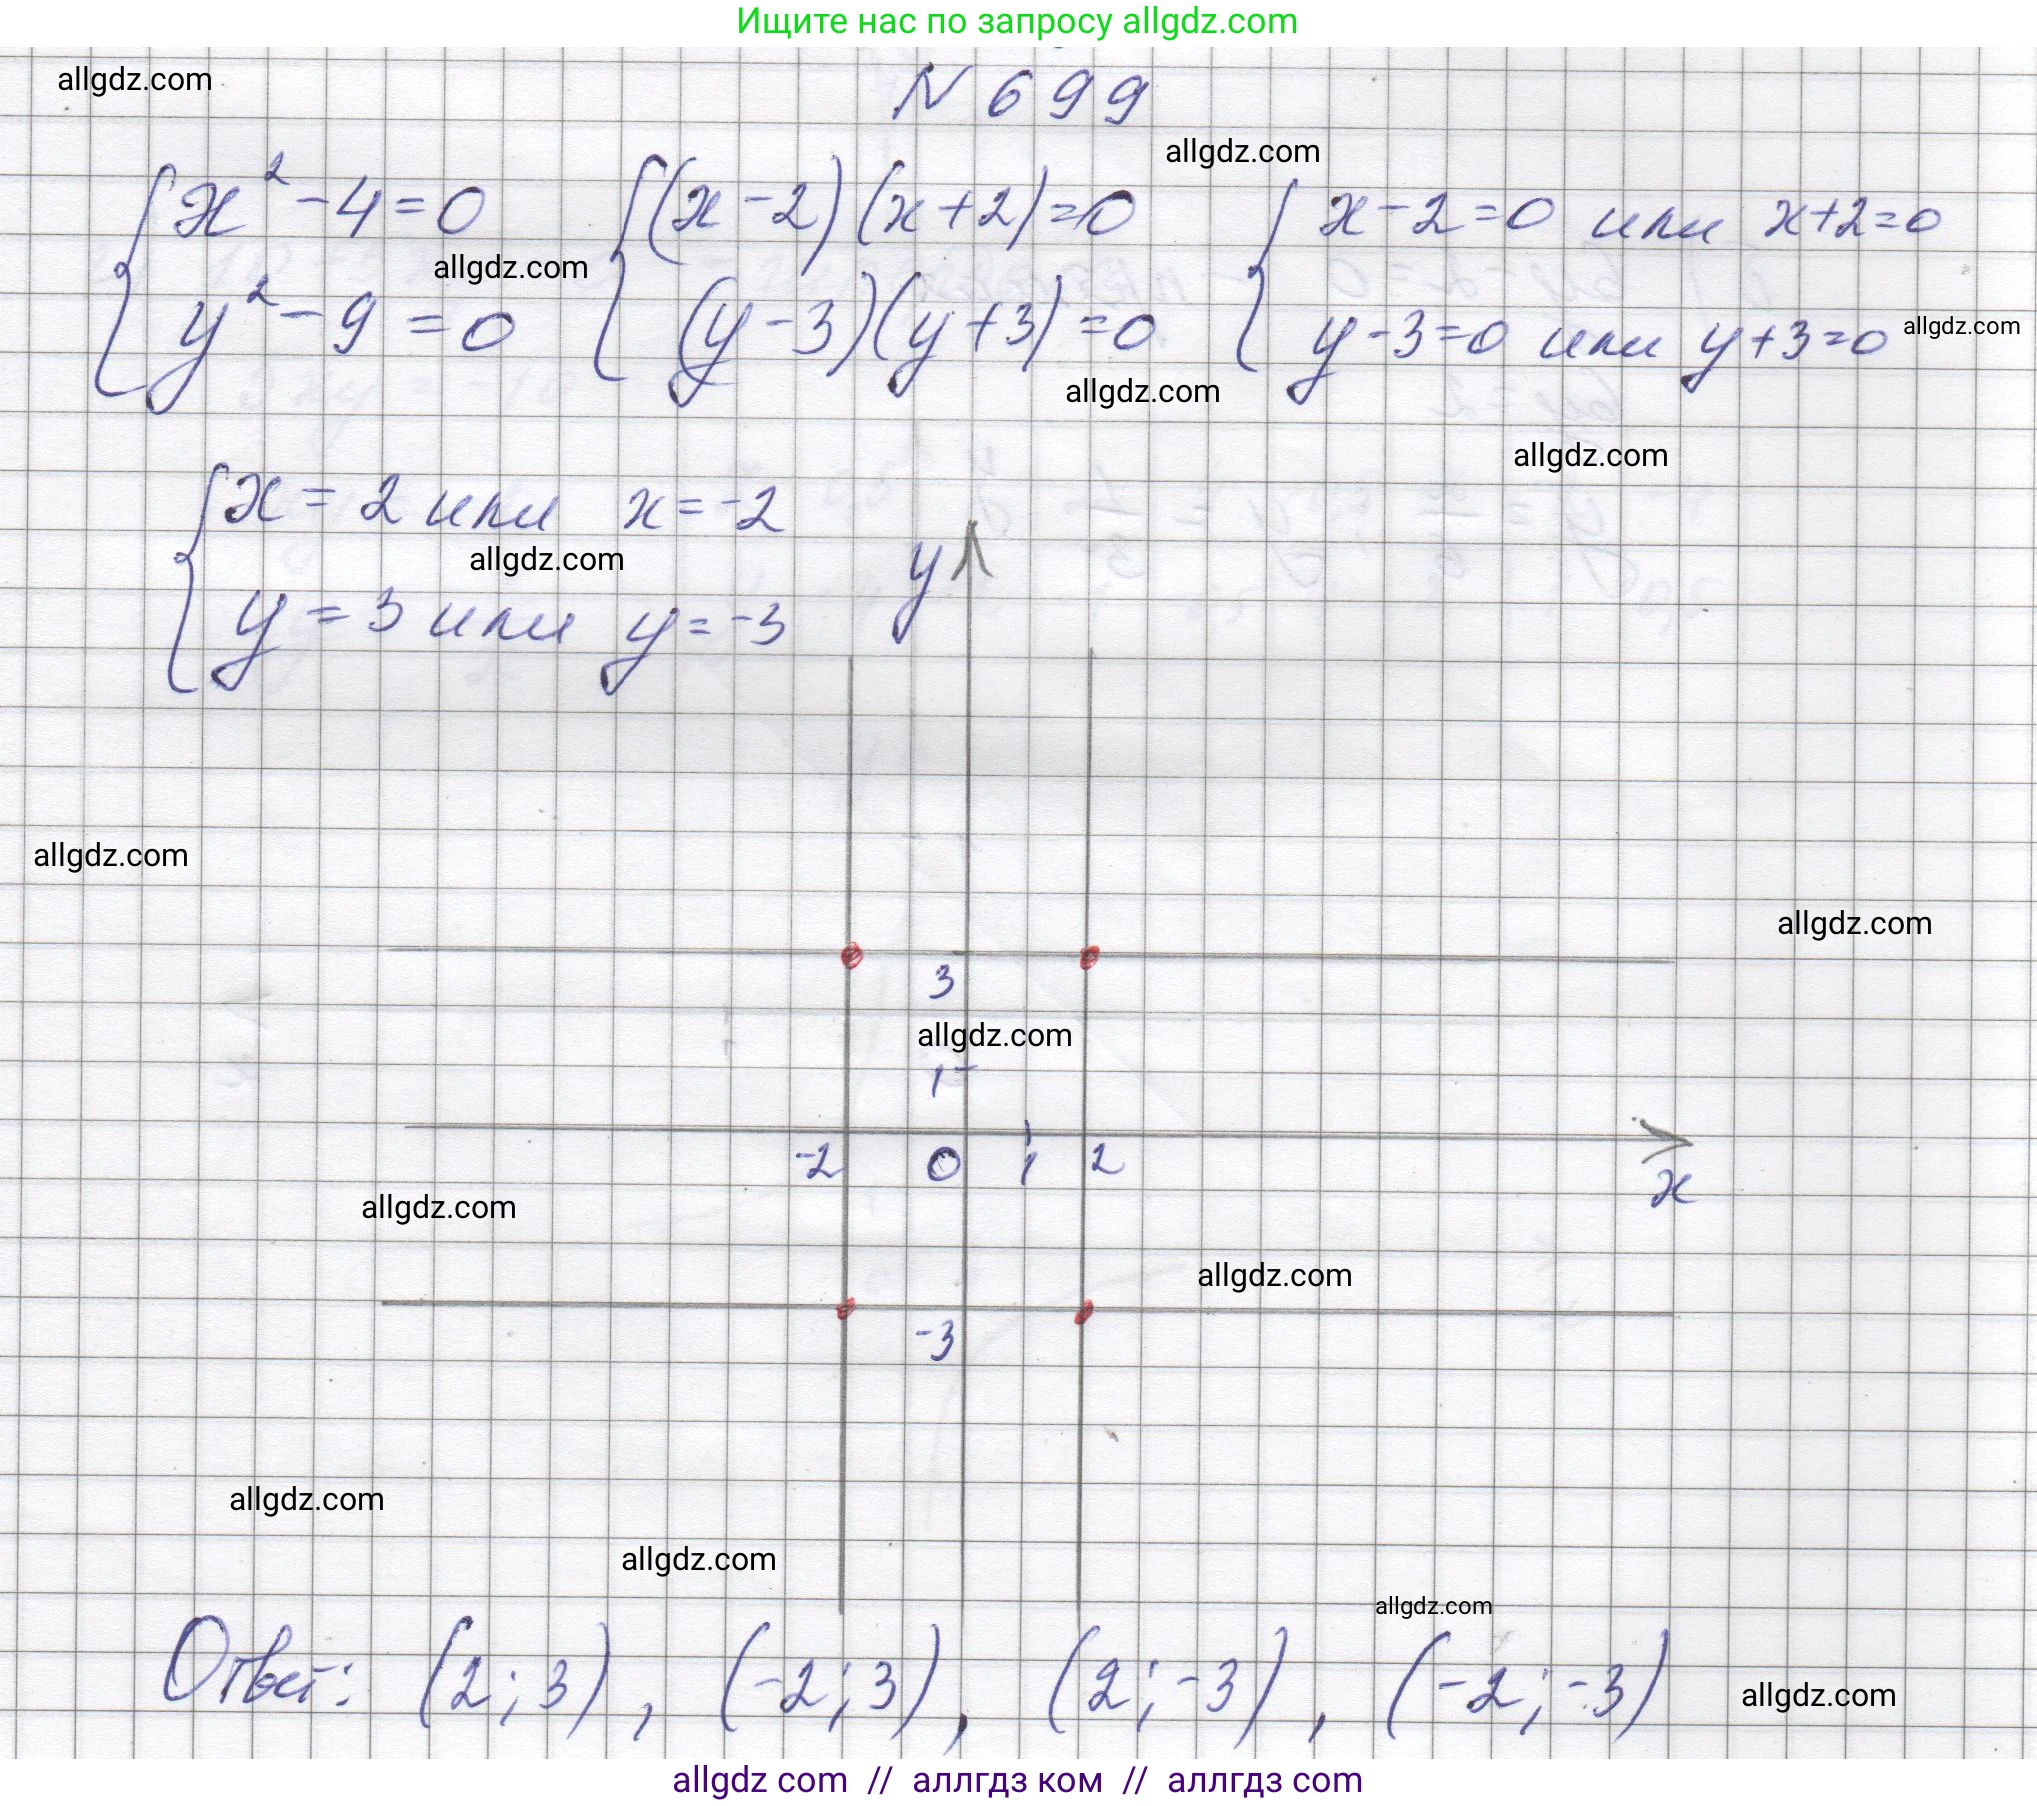 Ищите нас по запросу allgdz.com
allgdz.com
N 699
allgdz.com
{ x² - 4 = 0 { (x - 2)(x + 2) = 0 { x - 2 = 0 или x + 2 = 0
allgdz.com
{ y² - 9 = 0 { (y - 3)(y + 3) = 0 { y - 3 = 0 или y + 3 = 0
allgdz.com
allgdz.com
allgdz.com
{ x = 2 или x = -2
allgdz.com
y
{ y = 3 или y = -3
allgdz.com
allgdz.com
3
allgdz.com
1
-2 0 1 2
x
allgdz.com
allgdz.com
-3
allgdz.com
allgdz.com
allgdz.com
Ответ: (2; 3), (-2; 3), (2; -3), (-2; -3)
allgdz.com
allgdz com // аллгдз ком // аллгдз com